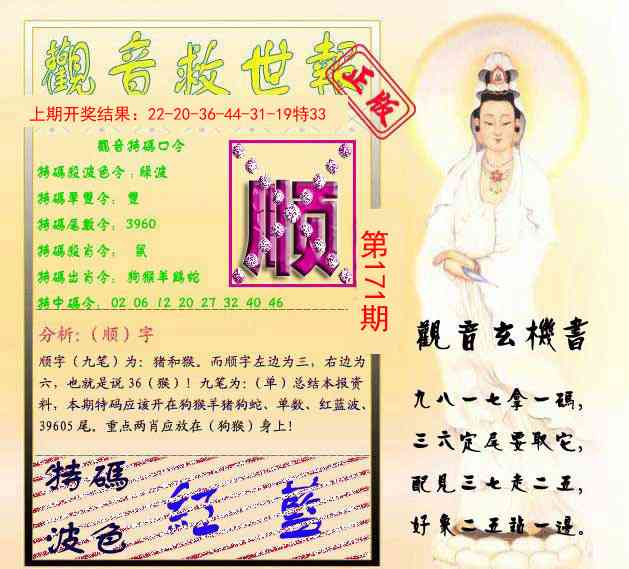 觀音救世報
正版
上期开奖结果：22-20-36-44-31-19特33
觀音特碼口令
特碼殺波色令：綠波
特碼單雙令：雙
特碼尾數令：3960
特碼殺肖令：鼠
特碼出肖令：狗猴羊鷄蛇
特中碼令：02 06 12 20 27 32 40 46
顺
第171期
分析：（顺）字
顺字（九笔）为：猪和猴。而顺字左边为三，右边为
六，也就是说 36（猴）！九笔为：（单）总结本报资
料，本期特码应该开在狗猴羊猪狗蛇、单数、红蓝波、
39605 尾。重点两肖应放在（狗猴）身上！
特碼
波色
紅 藍
觀音玄機書
九八一七拿一碼，
三六定尾要取它，
配見三七走二五，
好象二五站一邊。